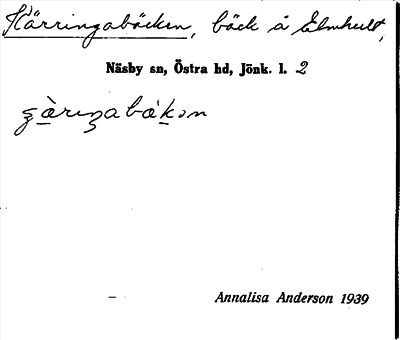 Kärringabäcken, bäck å Elmhult,
Näsby sn, Östra hd, Jönk. l. 2
Annalisa Anderson 1939